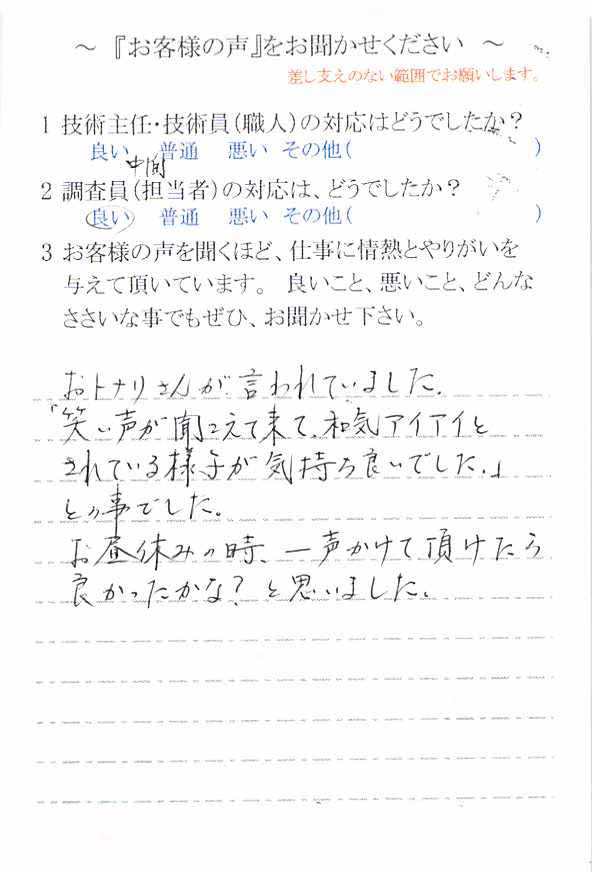 ～『お客様の声』をお聞かせください ～
差し支えのない範囲でお願いします。
1 技術主任・技術員(職人)の対応はどうでしたか?
良い 普通 悪い その他( )
中間
2 調査員(担当者)の対応は、どうでしたか?
良い 普通 悪い その他( )
3 お客様の声を聞くほど、仕事に情熱とやりがいを
与えて頂いています。 良いこと、悪いこと、どんな
ささいな事でもぜひ、お聞かせ下さい。
おトナリさんが言われていました。
「笑い声が聞こえて来て、和気アイアイと
されている様子が気持ち良いでした。」
との事でした。
お昼休みの時、一声かけて頂けたら
良かったかな?と思いました。